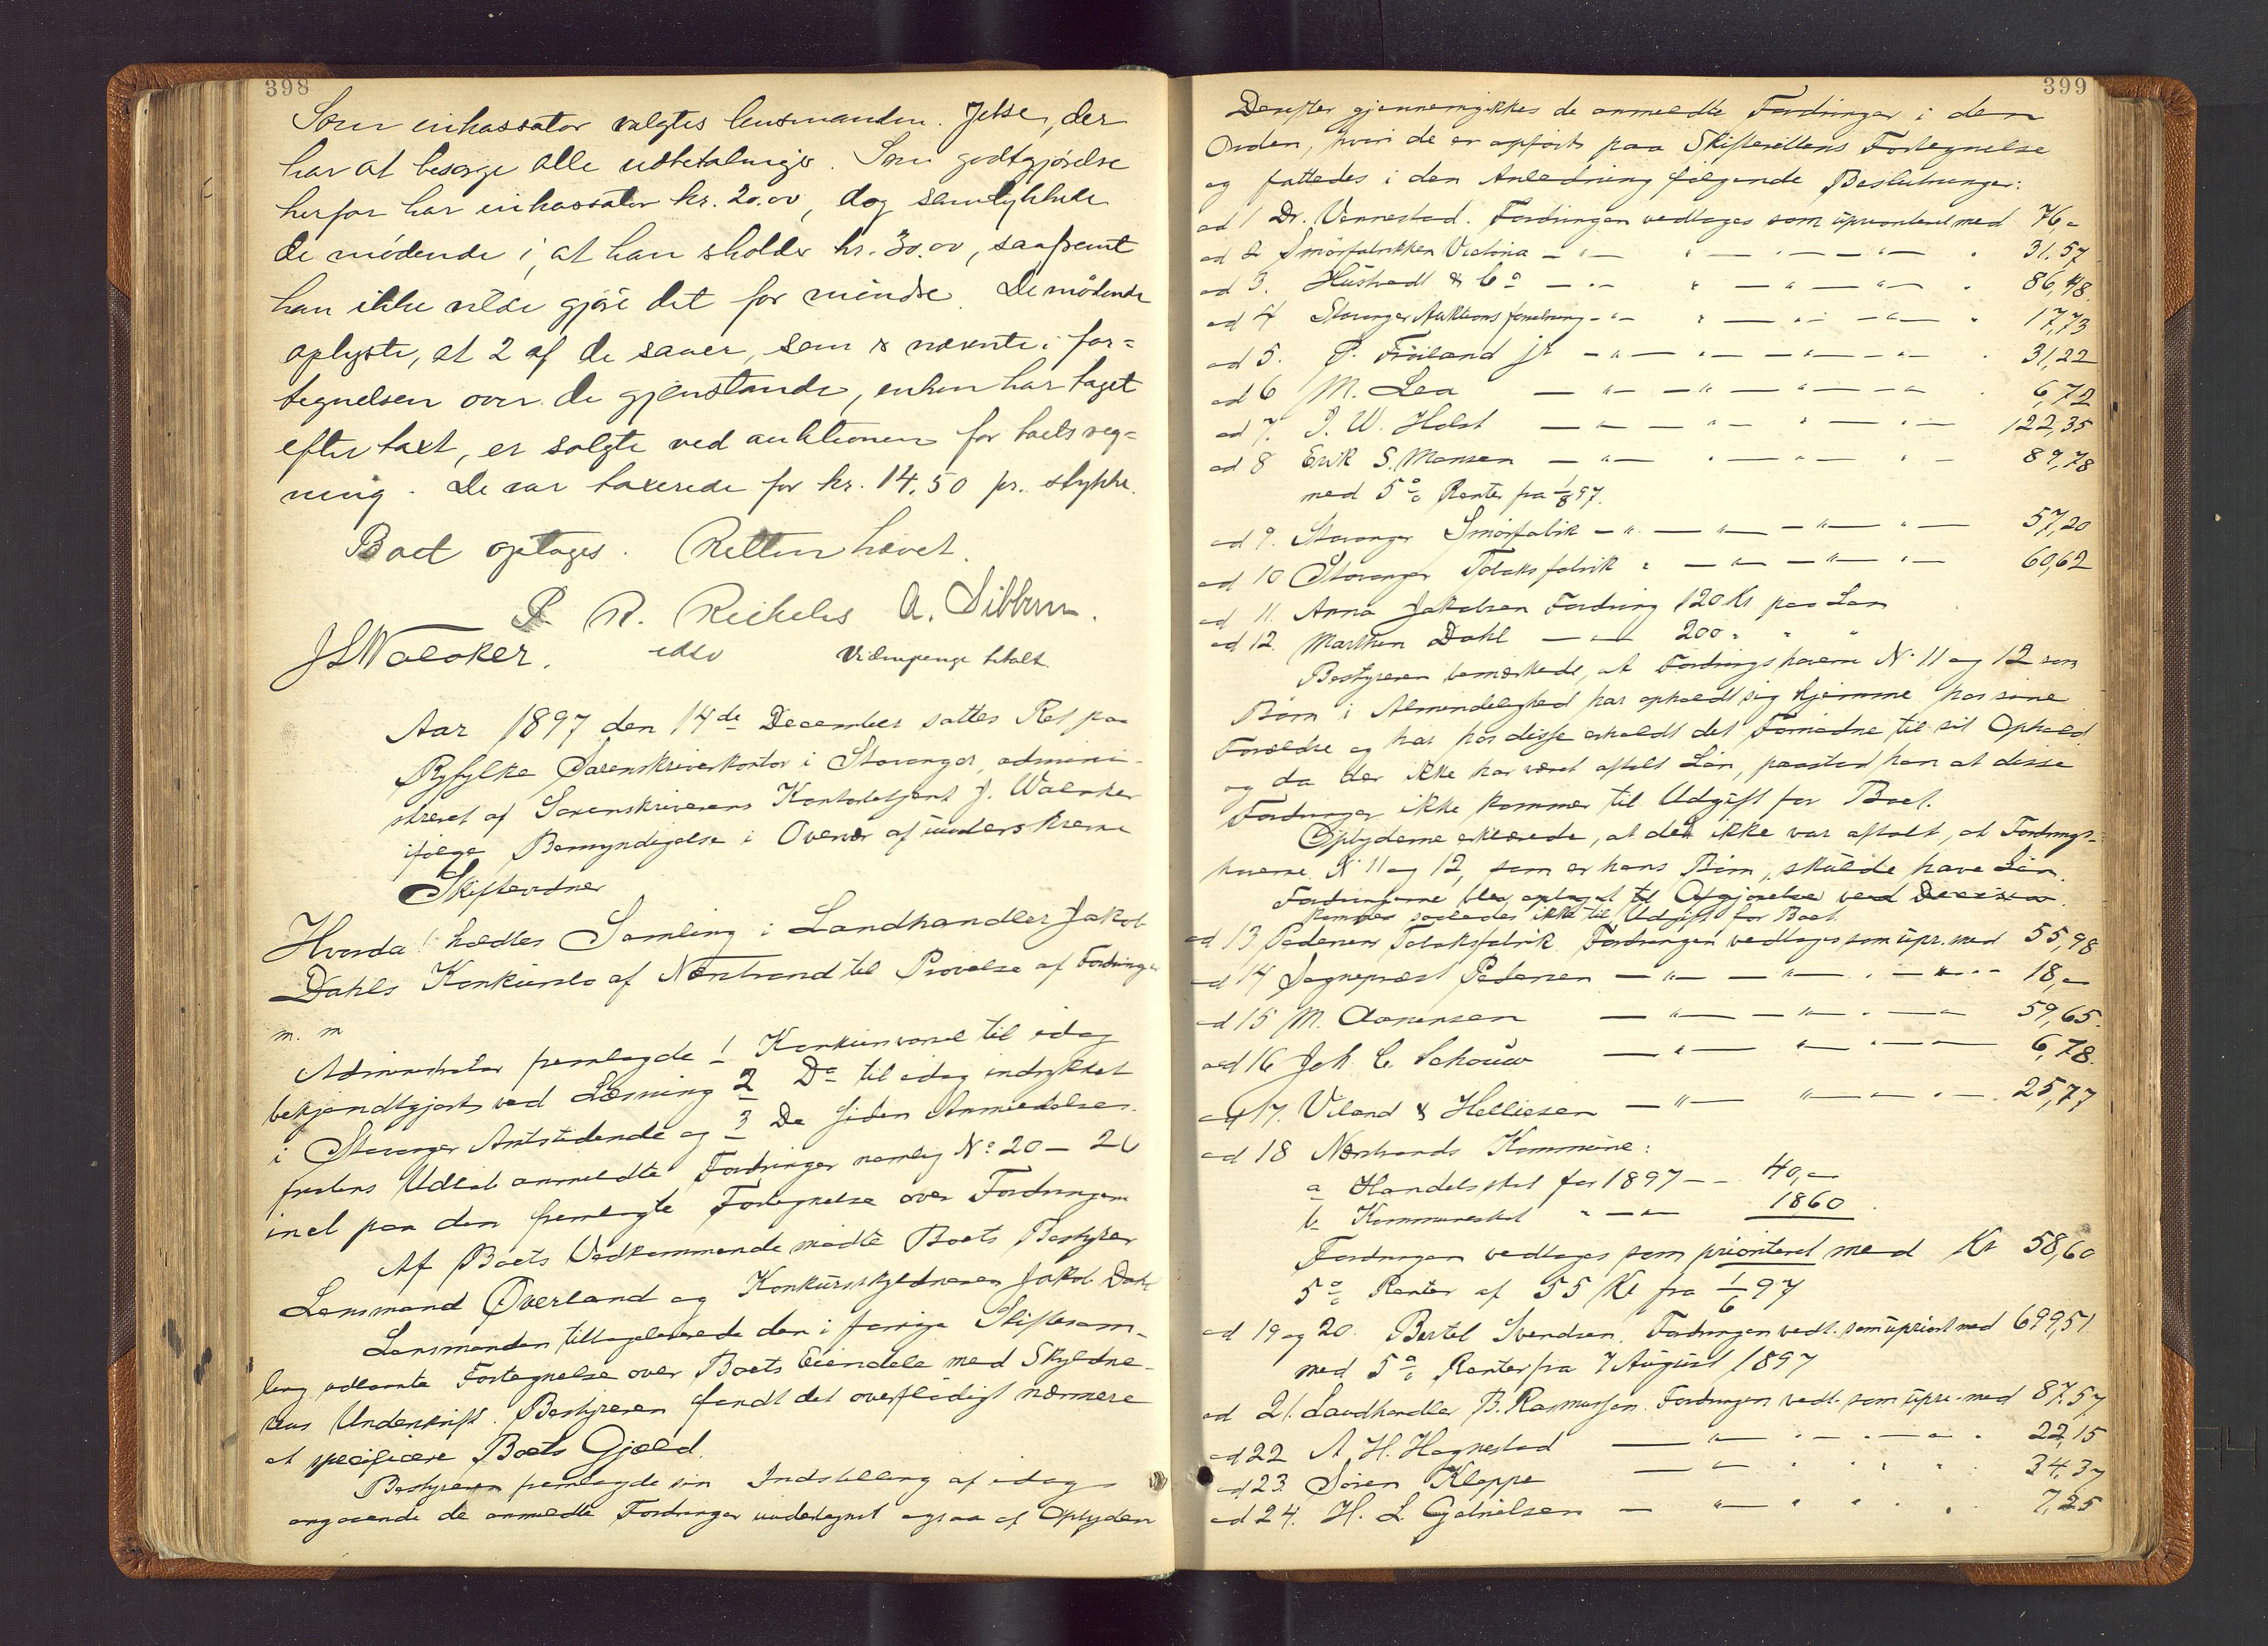 398
Som inkassator valgtes lensmanden i Jelse, der
har at besørge alle udbetalinger. Som godtgjørelse
herfor har inkassator kr. 20.00, dog samtykkede
de mødende i, at han skolde kr. 30.00, saafremt
han ikke vilde gjøre det for mindre. De mødende
oplyste, at 2 af de sauer, som er nævnte i for=
tegnelsen over de gjenstande, enken har taget
efter taxt, er solgte ved auktionen for boets reg=
ning. De var taxerede for kr. 14.50 pr. stykke.
Boet optages. Retten hævet.
R. A. Sibbern.
Vidnepenge betalt.
Aar 1897 den 14de December sattes Ret paa
Ryfylke Sorenskriverkontor i Stavanger, admini-
streret af Sorenskriverens Kontorbetjent J. Walaker
ifølge Bemyndigelse i Overvær af underskrevne
Skiftevidner
Hvorda! holdtes Samling i Landhandler Jakob
Dahls Konkursbo af Nærstrand til Prøvelse af Fordringer
m. m
Administrator fremlagde 1 Konkursvarsel til idag
bekjendtgjort ved Læsning 2 Do til idag indrykket
i Stavanger Amtstidende og 3 De siden Anmeldelses-
fristens Udløb anmeldte Fordringer nemlig No 20 – 26
incl paa den fremlagte Fortegnelse over Fordringer
Af Boets Vedkommende mødte Boets Bestyrer
Lensmand Øverland og Konkursskyldneren Jakob Dahl
Lensmanden tilbageleverede den i forrige Skiftesam-
ling udlaante Fortegnelse over Boets Eiendele med Skyldne-
rens Underskrift. Bestyreren fandt det overflødigt nærmere
at specificere Boets Gjæld.
Bestyreren fremlagde sin Indstilling af idag
angaaende de anmeldte Fordringer undertegnet ogsaa af Opbyderen
399
Derefter gjennemgikkes de anmeldte Fordringer i den
Orden, hvori de er opført paa Skifterettens Fortegnelse
og fattedes i den Anledning følgende Beslutninger:
ad 1 Dr. Vennestad. Fordringen vedtages som uprioriteret med 76,-
ad 2 Smørfabrikken Victoria — " — " — " — " — " 31,57
ad 3. Hustvedt & Co — " — " — " — " — " 86,48
ad 4 Stavanger Auktionsforretning — " — " — " — " — " 17,73
ad 5. P. Frøiland jr — " — " — " — " — 31,22
ad 6 M. Lea — " — " — " — " — 6,72
ad 7. I. W. Holst — " — " — " — " — 122,35
ad 8 Erik S. Monsen — " — " — " — " — 89,78
med 5 % Renter fra 1/8 97.
ad 9. Stavanger Smørfabrik — " — " — " — " — 57,20
ad 10 Stavanger Tobaksfabrik " — " — " — " — 60,62
ad 11. Anna Jakobsen Fordring 120 Kr paa Løn
ad 12. Marthin Dahl — " — 200 " " "
Bestyreren bemærkede, at Fordringshaverne No 11 og 12 som
Børn i Almindelighed har opholdt sig hjemme hos sine
Forældre og har hos disse erholdt det Fornødne til sit Ophold
og da der ikke har været aftalt Løn, paastod han at disse
Fordringer ikke kommer til Udgift for Boet.
Opbyderne erklærede, at det ikke var aftalt, at Fordrings-
haverne No 11 og 12, som er hans Børn, skulde have Løn.
Fordringerne blev optaget til Afgjørelse ved Decision.
kommer saaledes ikke til Udgift for Boet.
ad 13 Pedersens Tobaksfabrik. Fordringen vedtages som upr. med 55,98
ad 14 Sogneprest Pedersen — " — " — " — " — 18,-
ad 15 M. Aanensen — " — " — " — 59,65.
ad 16 Joh. C. Schouw — " — " — " — 6,78.
ad 17. Viland & Helliesen — " — " — " — 25,77
ad 18 Nærstrands Kommune:
a Handelsskat for 1897 — — 40,-
b Kommuneskat " — " — 18,60
Fordringen vedtages som prioriteret med Kr 58,60
5 % Renter af 55 Kr fra 1/6 97
ad 19 og 20. Bertel Svendsen. Fordringen vedt. som upriort med 699,51
med 5 % Renter fra 7 August 1897
ad 21. Landhandler B. Rasmussen. Fordringen vedt. som upri. med 87,57
ad 22 A. H. Hognestad — " — " — " — " 22,15
ad 23. Søren Kleppe — " — " " " 34,37
ad 24. H. L. Gabrielsen — " " " " 7,25